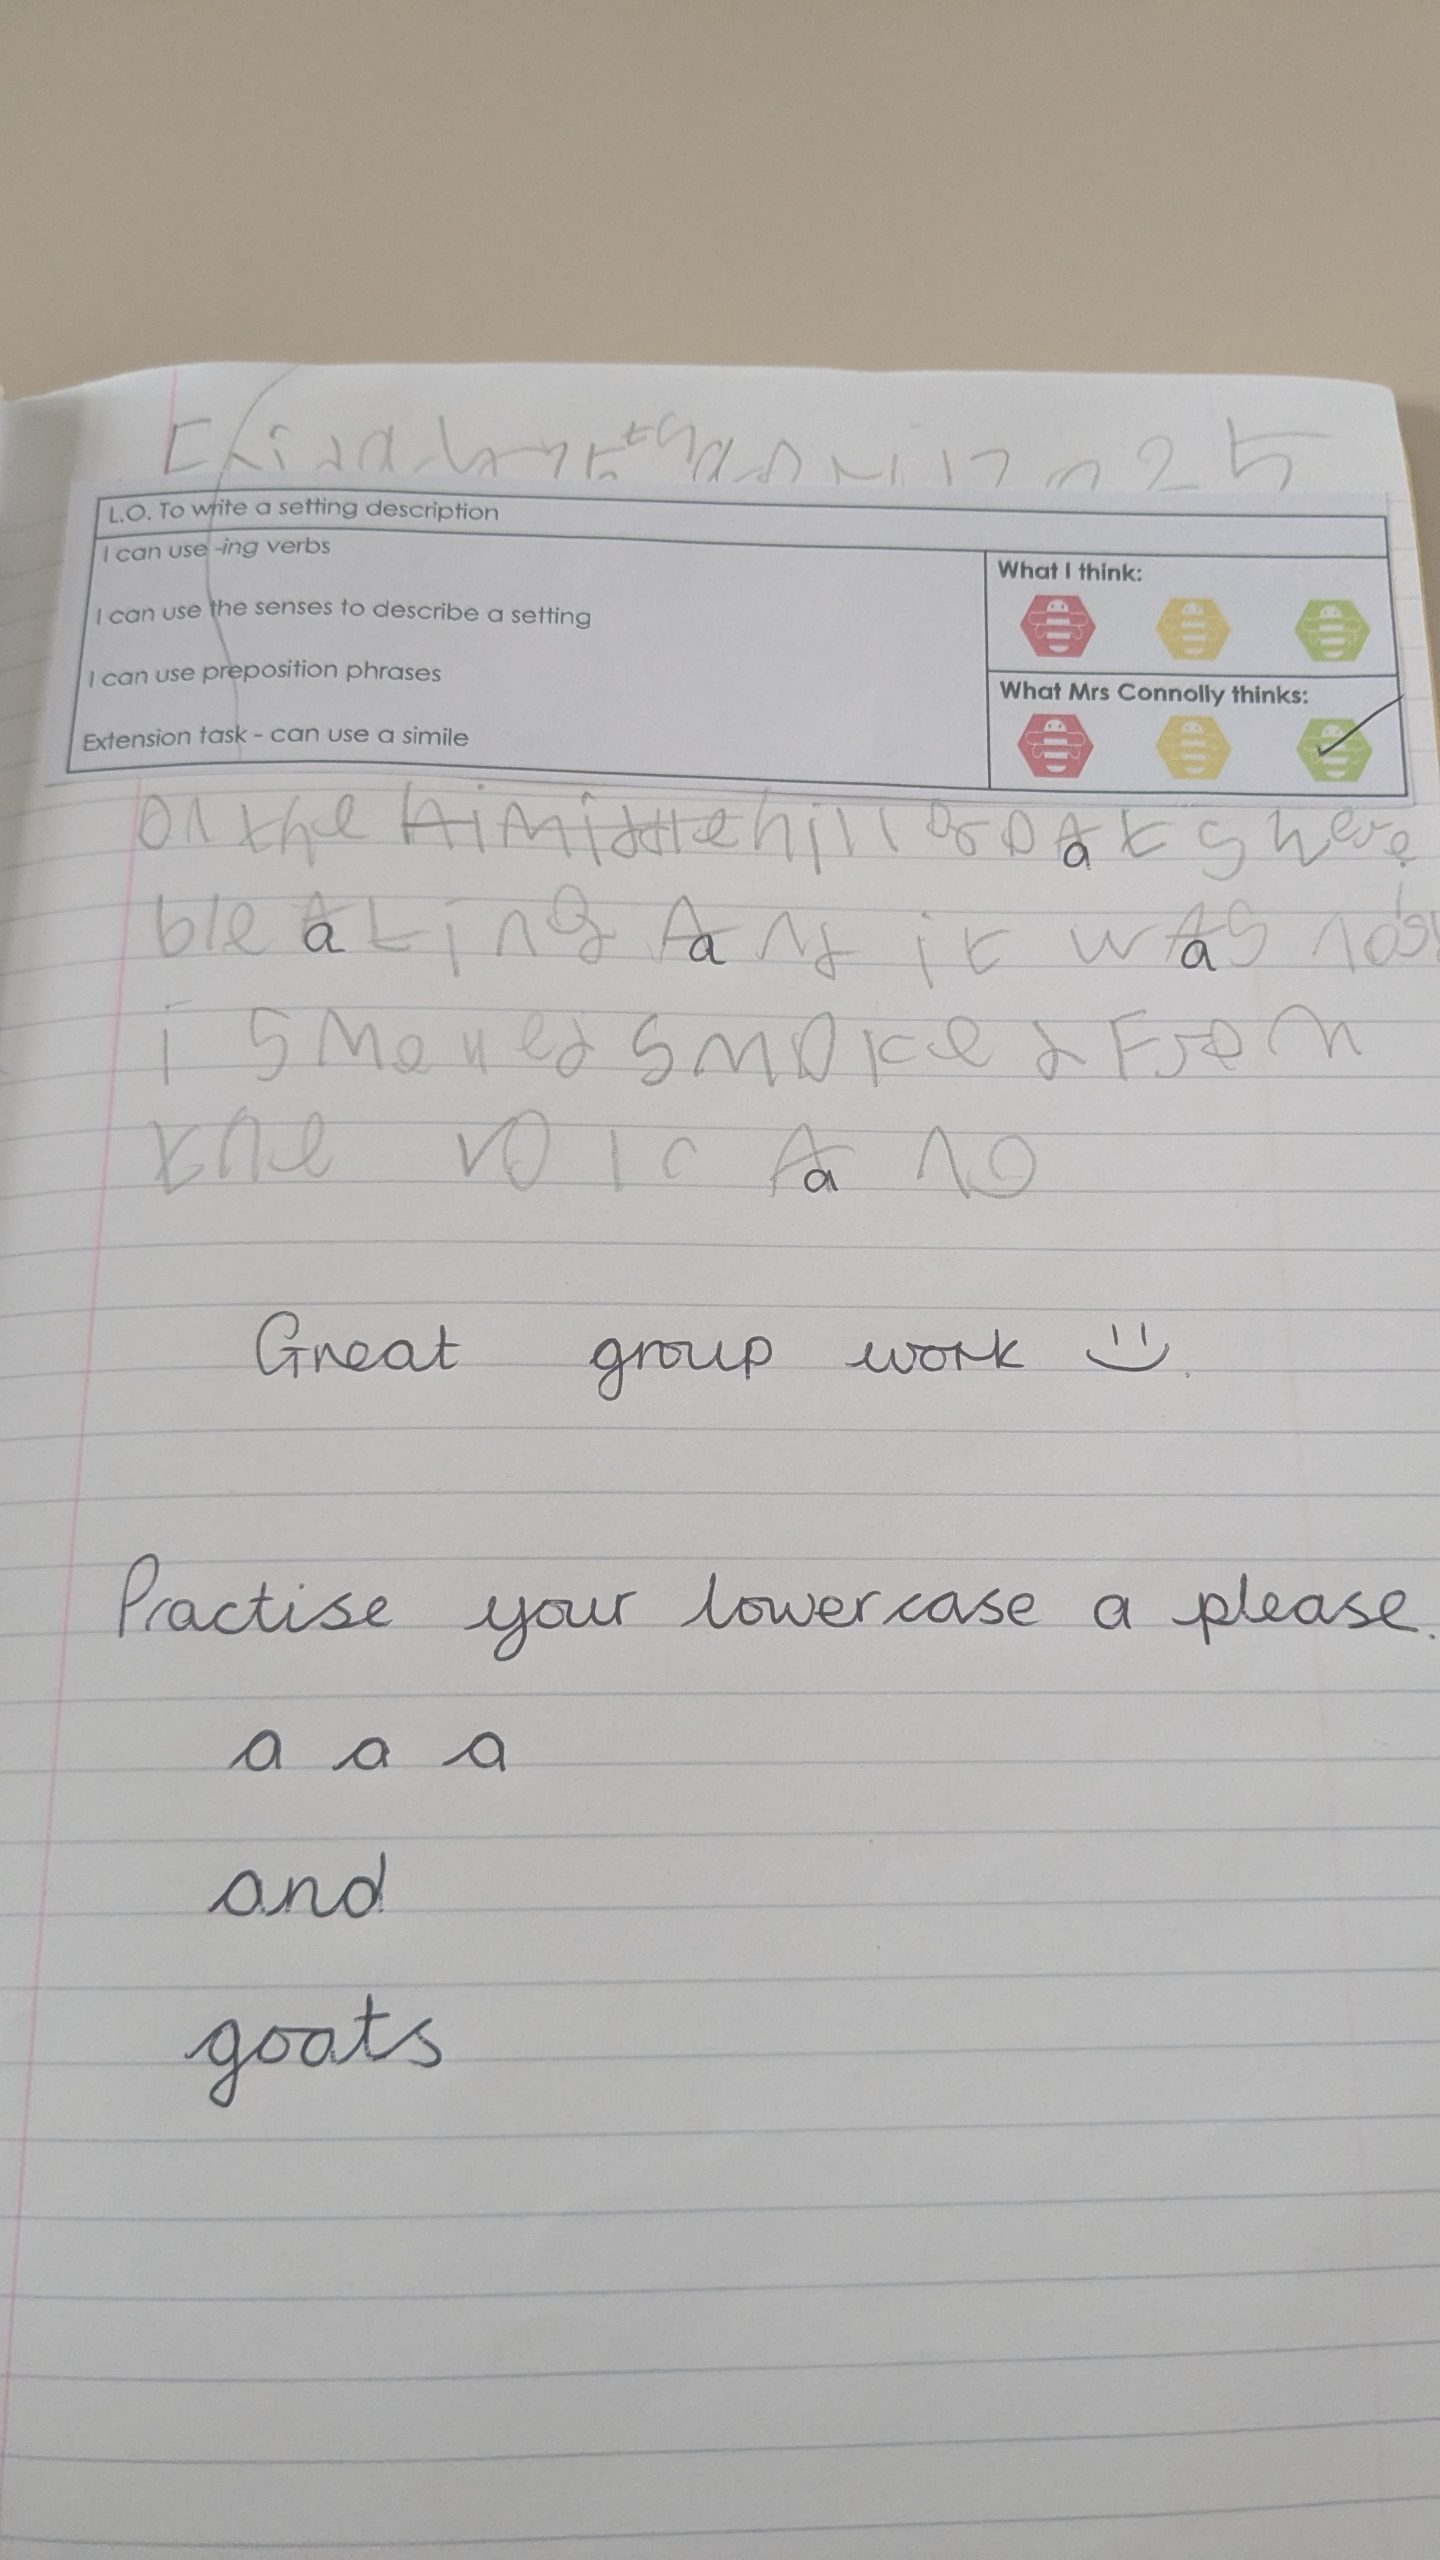 25
L.O. To write a setting description
I can use -ing verbs
What I think:
I can use the senses to describe a setting
I can use preposition phrases
What Mrs Connolly thinks:
Extension task - can use a simile
on the hill goats were
bleating and it was
i smelled smoke from
the volcano
Great group work
Practise your lowercase a please.
a a a
and
goats